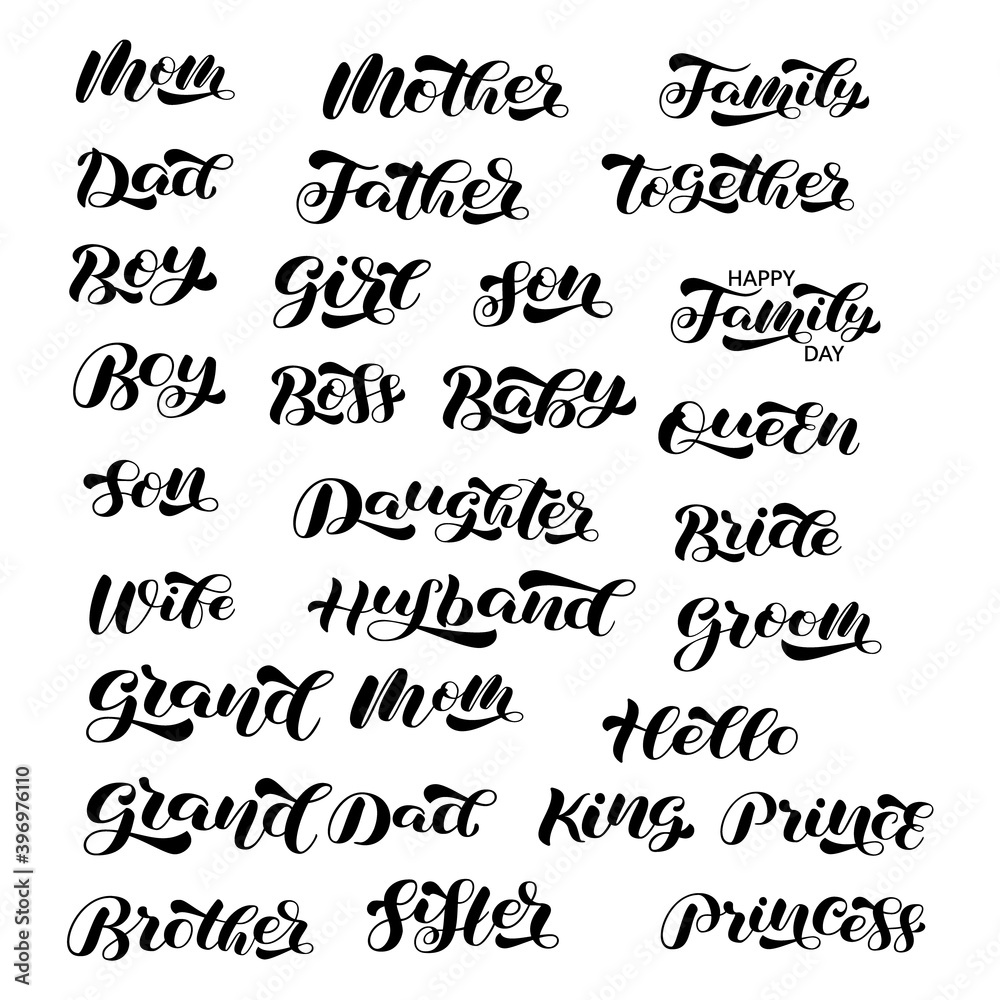 Mom Mother Family
Dad Father Together
Boy Girl Son
HAPPY
Family
DAY
Boy Boss Baby
Queen
Son Daughter
Bride
Wife Husband Groom
Grand Mom
Hello
Grand Dad King Prince
Brother Sister Princess
Adobe Stock | #396976110